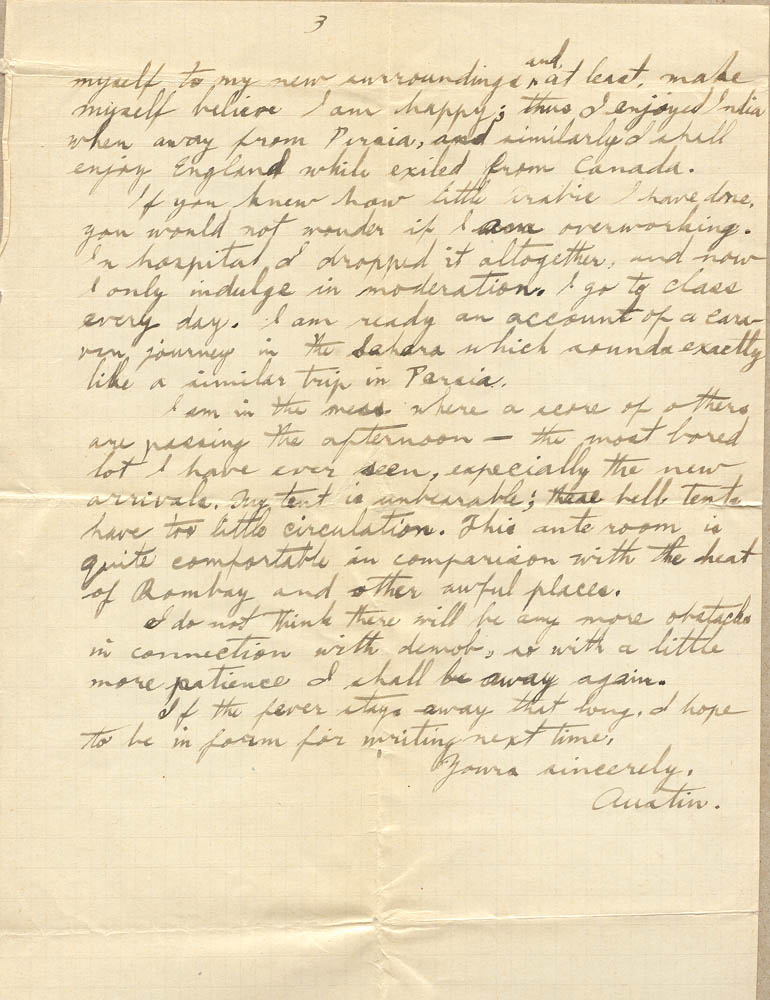 3
myself to my new surroundings and, at least, make
myself believe I am happy; thus I enjoyed India
when away from Persia, and similarly I shall
enjoy England while exiled from Canada.
If you knew how little Arabic I have done,
you would not wonder if I am overworking.
In hospital I dropped it altogether, and now
I only indulge in moderation. I go to class
every day. I am ready an account of a cara-
van journey in the Sahara which sounds exactly
like a similar trip in Persia.
I am in the mess where a score of others
are passing the afternoon — the most bored
lot I have ever seen, especially the new
arrivals. My tent is unbearable; these bell tents
have too little circulation. This ante room is
quite comfortable in comparison with the heat
of Bombay and other awful places.
I do not think there will be any more obstacles
in connection with demob, so with a little
more patience I shall be away again.
If the fever stays away that long, I hope
to be in form for writing next time.
Yours sincerely,
Austin.